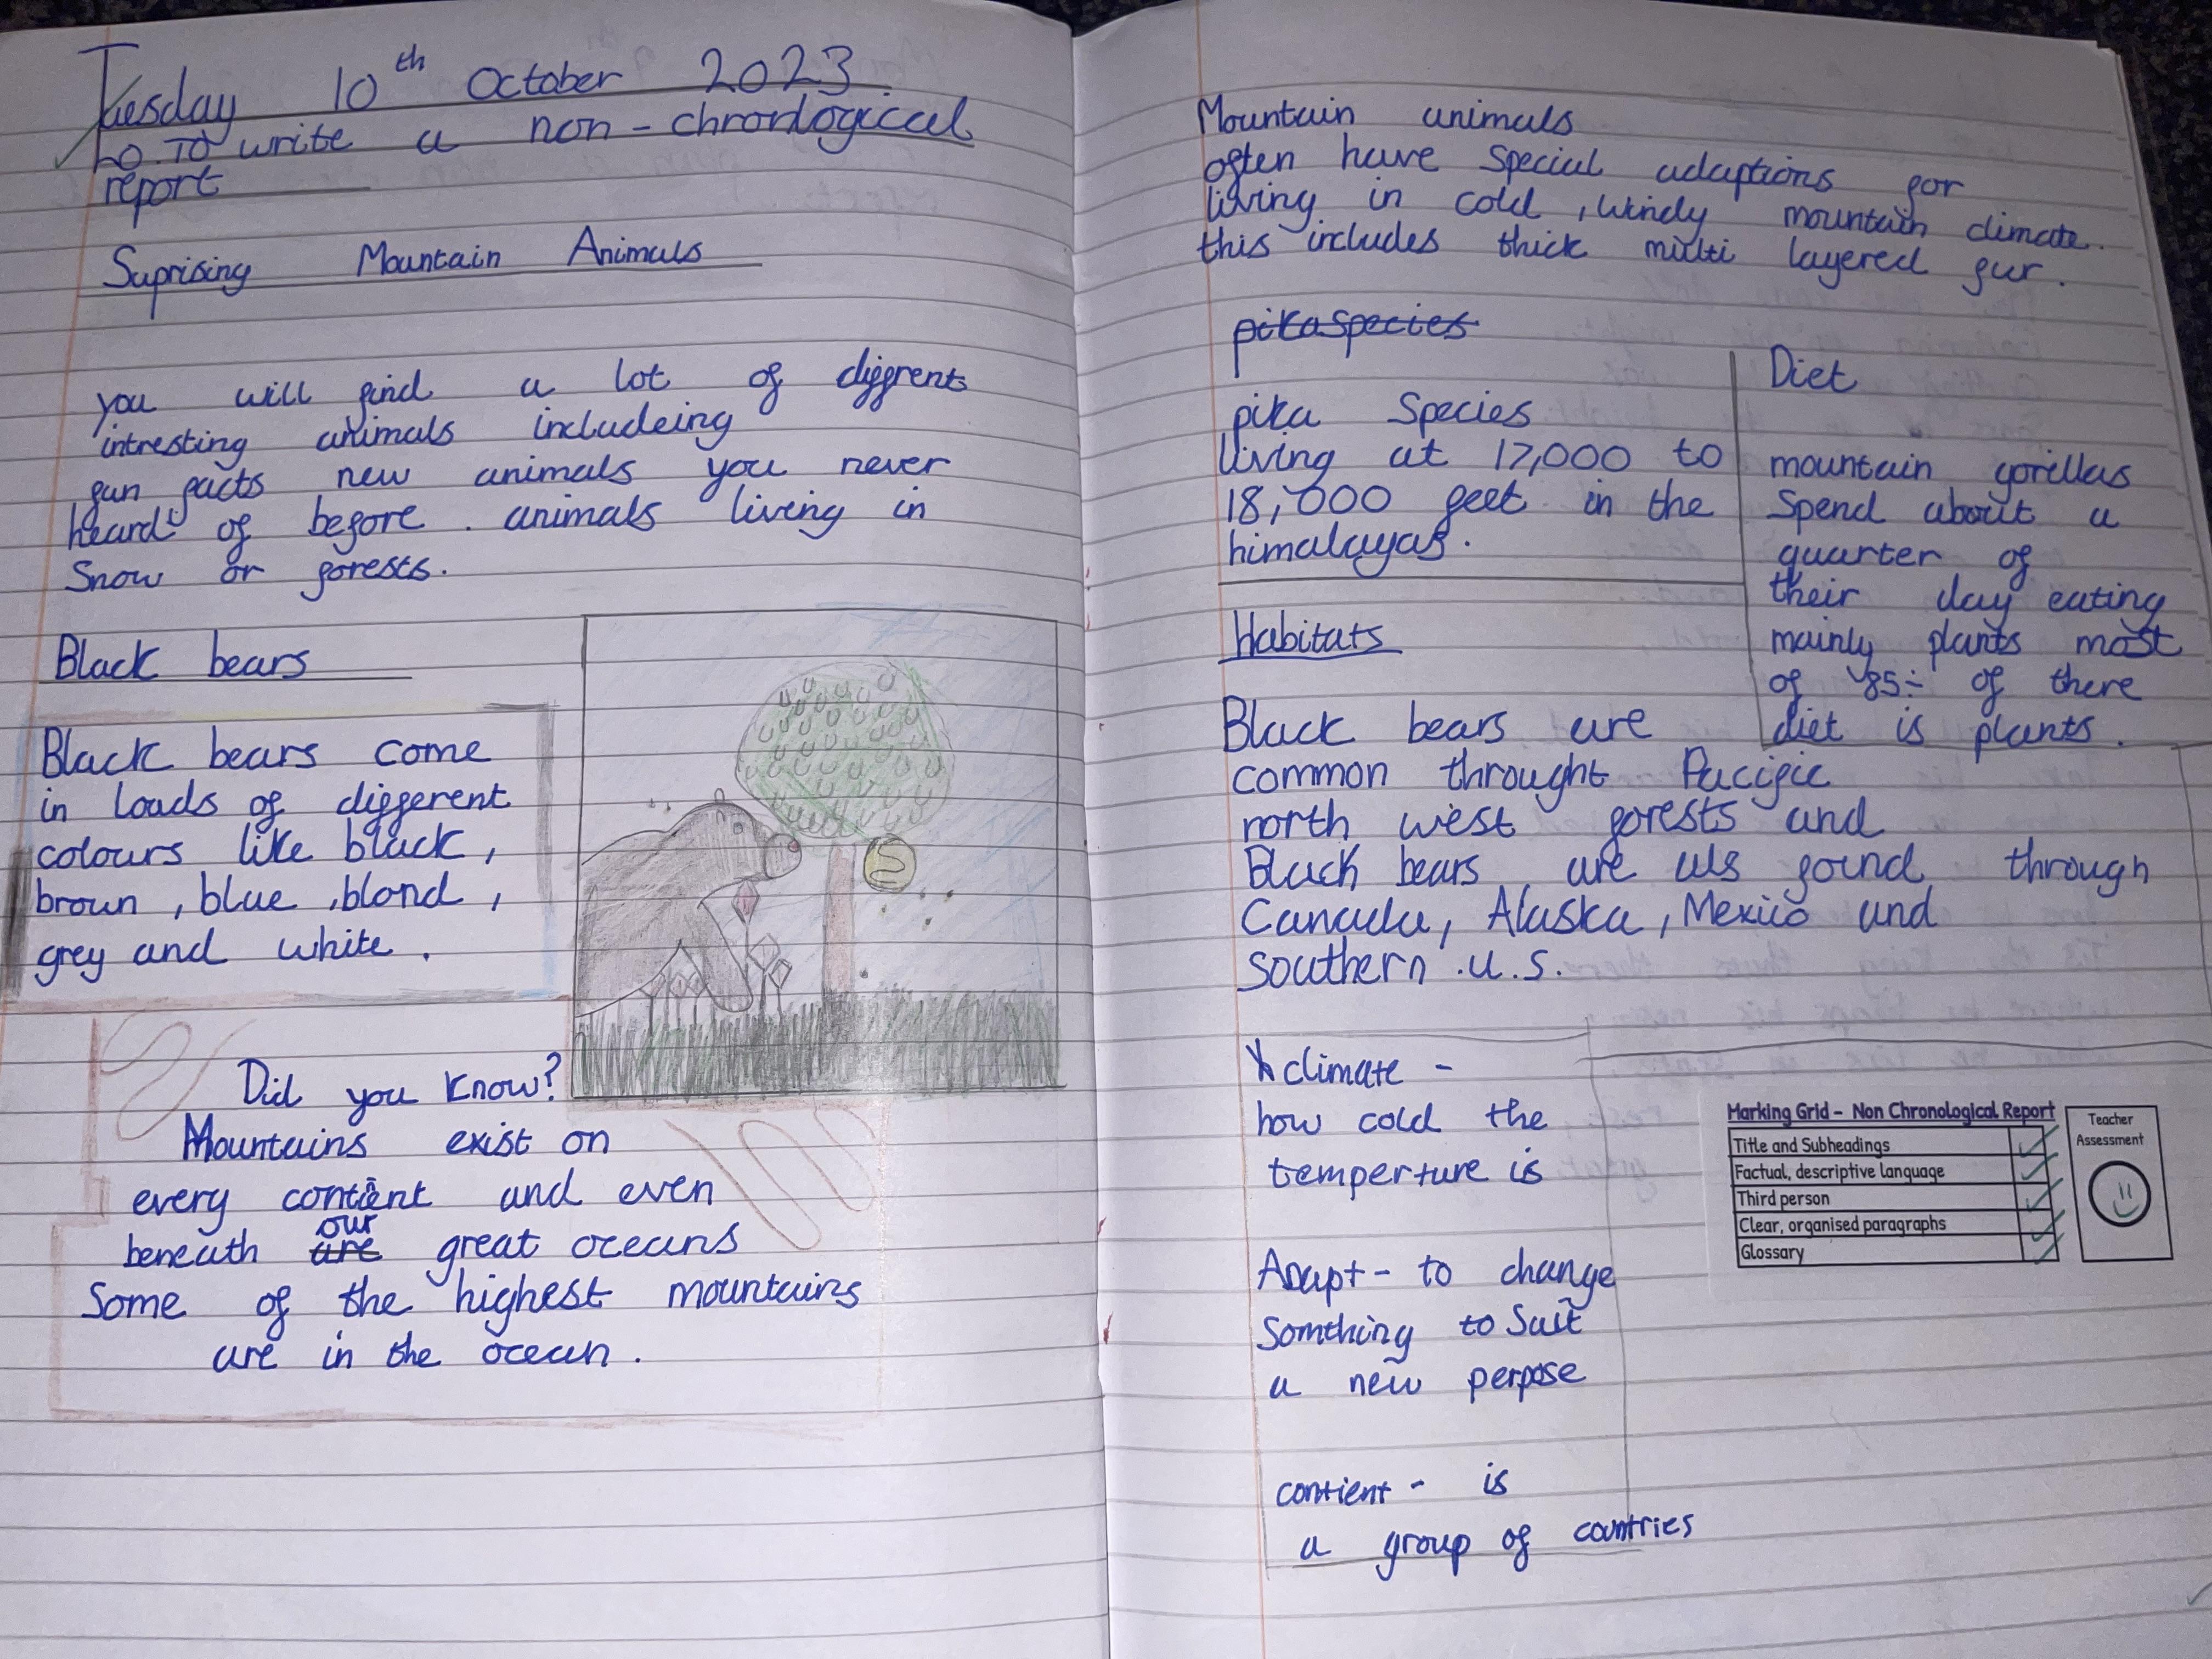 Tuesday 10th October 2023
L.O. To write a non-chronlogical
report
Suprising Mountain Animals
you will find a lot of diffrent
intresting animals includeing
fun facts new animals you never
heard of before . animals living in
Snow or forests.
Black bears
Black bears come
in loads of different
colours like black,
broun , blue , blond ,
grey and white .
Did you Know?
Mountains exist on
every contient and even
our
beneath are great oceans
Some of the highest mountains
are in the ocean .
Mountain animals
often have Special adaptions for
living in cold , Windy mountain climate.
this includes thick multi layered fur.
pikaspecies
pika Species
living at 17,000 to
18,000 feet in the
himalayas.
Diet
mountain gorillas
Spend about a
quarter of
their day eating
mainly plants most
of 85÷ of there
diet is plants .
Habitats
Black bears are
common throught Pacific
north west forests and
Black bears are als found through
Canada, Alaska, Mexico and
southern .u.s.
climate -
how cold the
temperture is
Adapt - to change
Somthing to Suit
a new perpose
contient - is
a group of countries
Marking Grid – Non Chronological Report
Title and Subheadings
Factual, descriptive language
Third person
Clear, organised paragraphs
Glossary
Teacher
Assessment